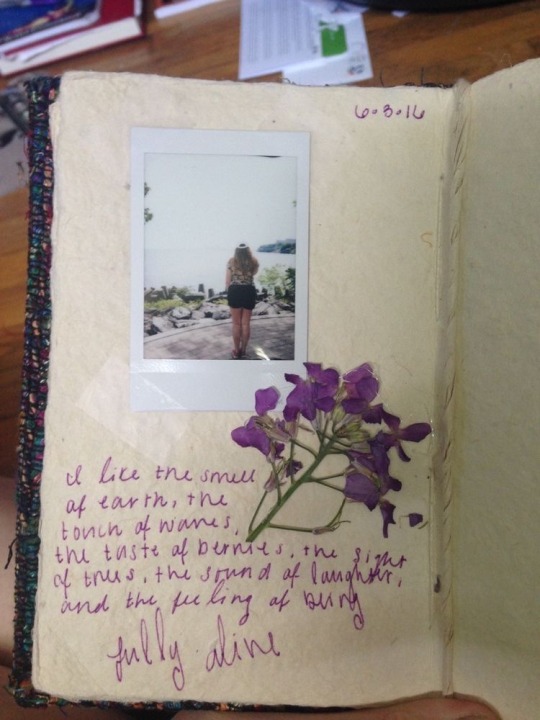 6.3.16
I like the smell
of earth, the
touch of waves,
the taste of berries, the sight
of trees, the sound of laughter,
and the feeling of being
fully alive